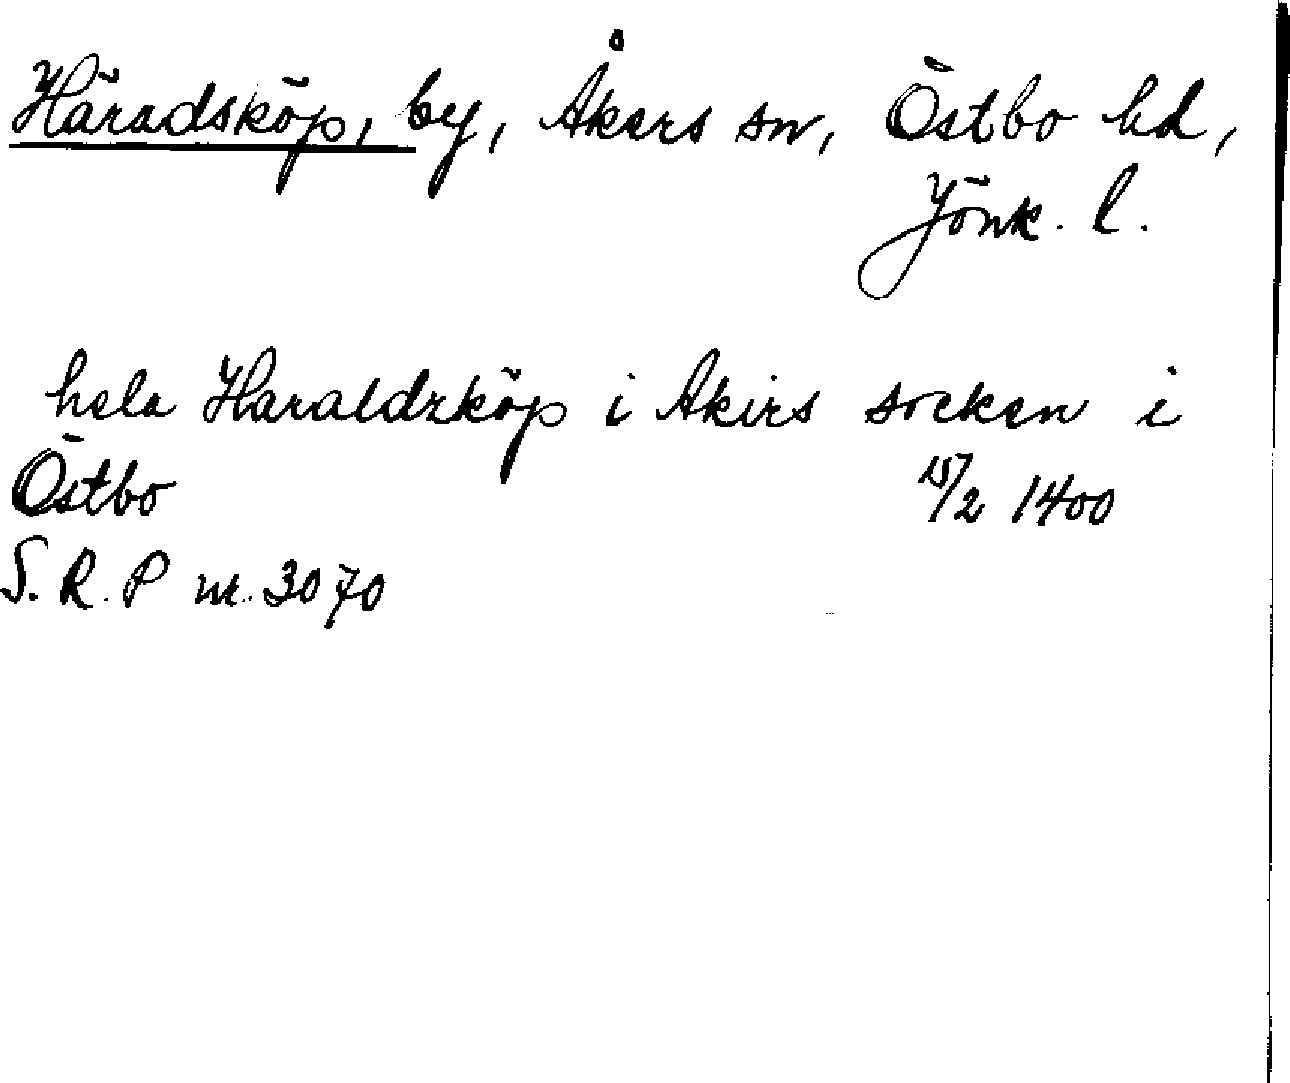 Häradsköp, by, Åkers sn, Östbo hd,
Jönk. l.
hela Haraldzköp i Akirs socken i
Östbo 15/2 1400
S. R. P nr. 3070